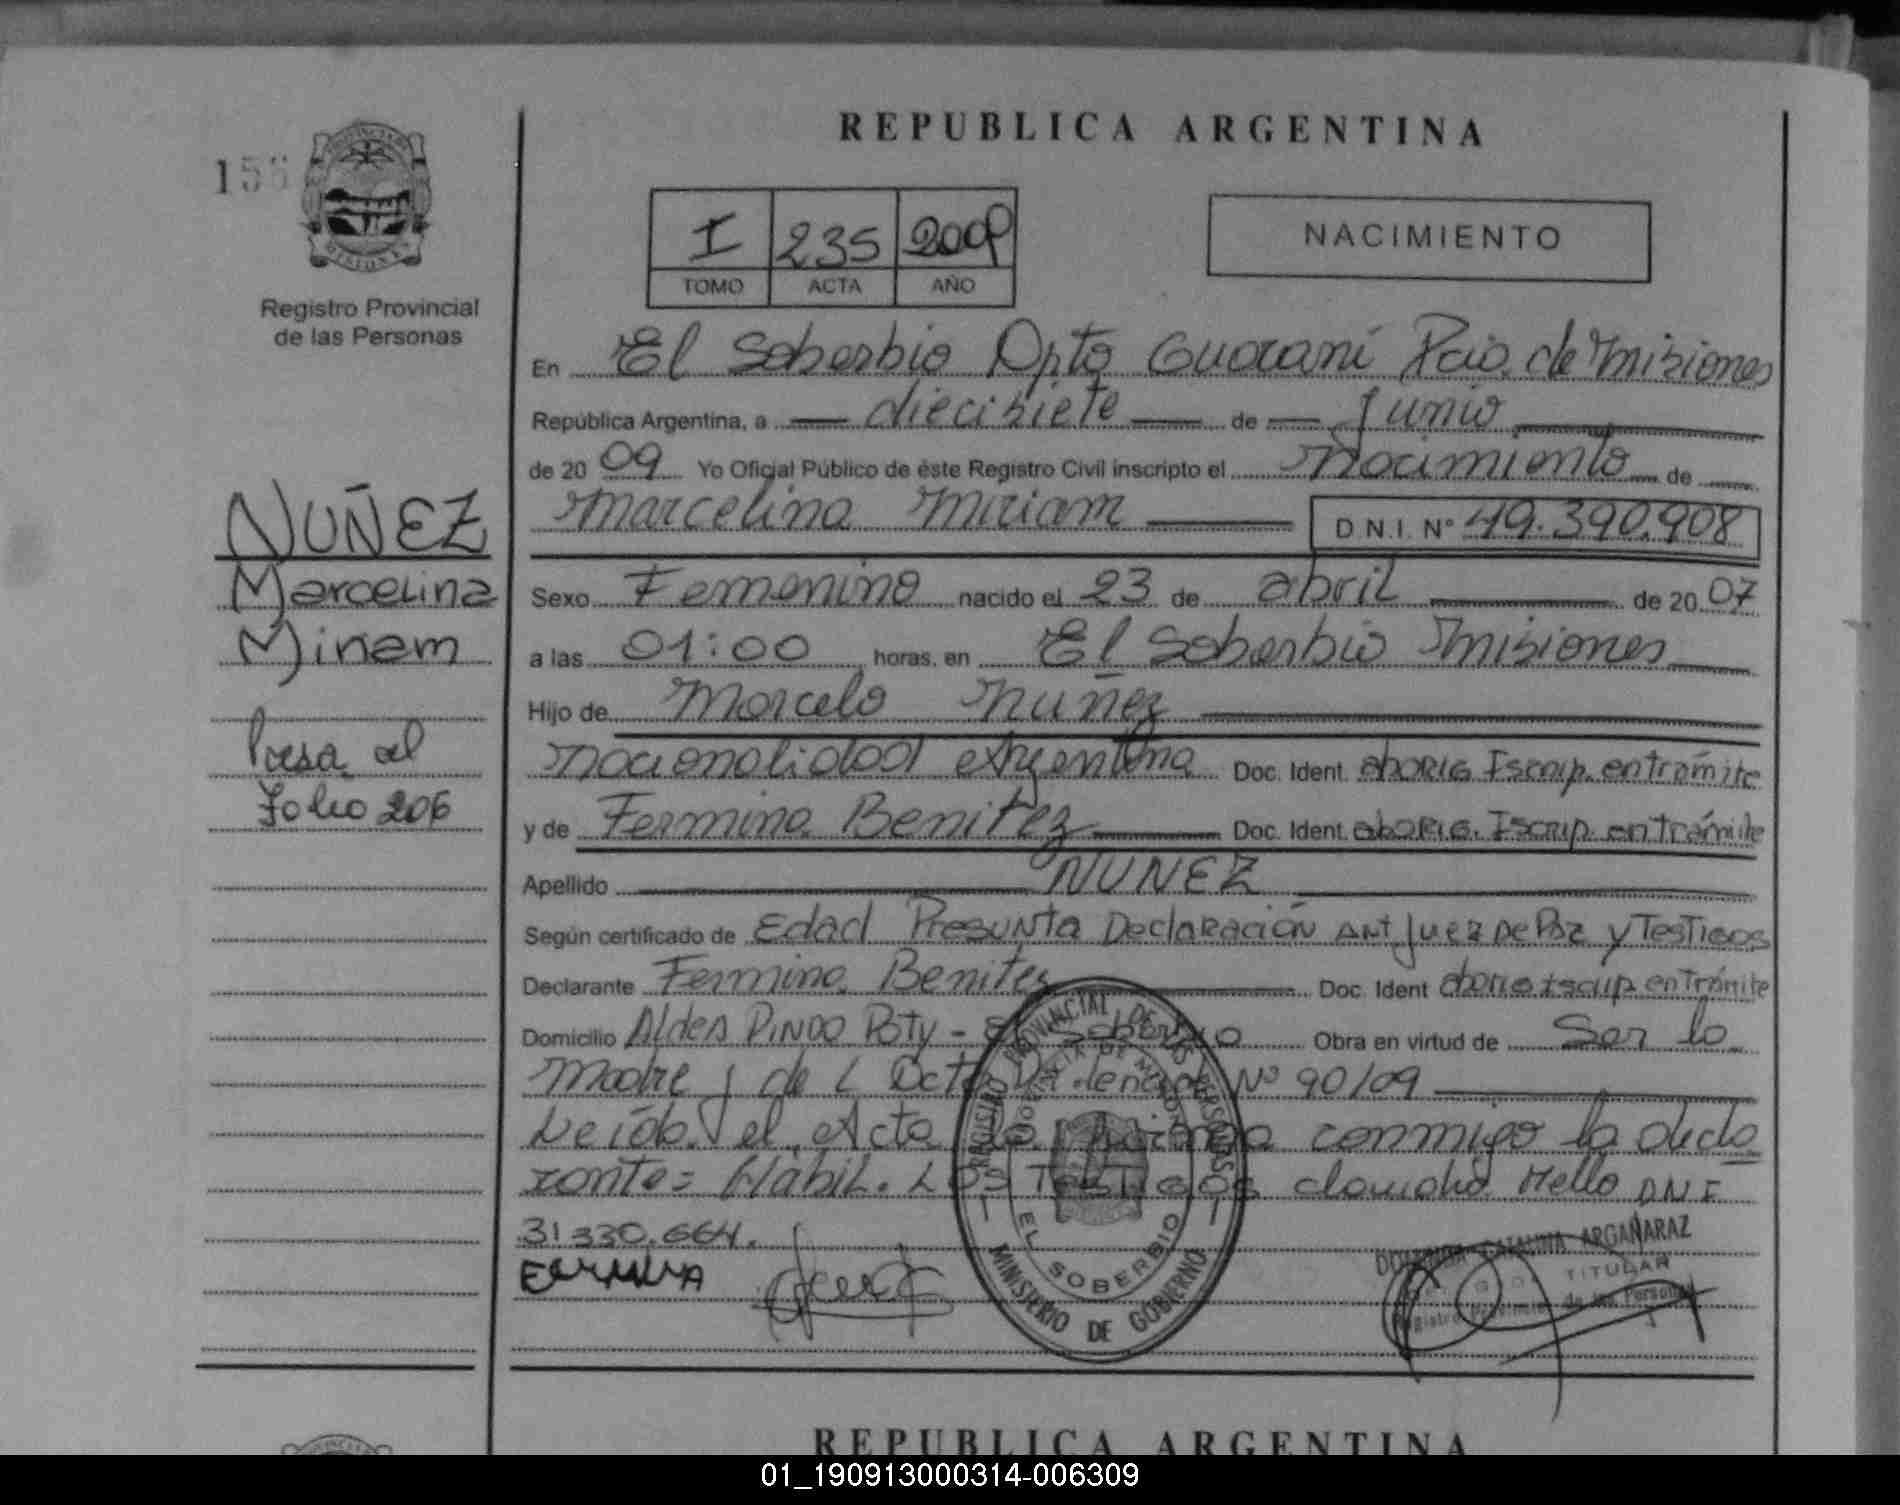 REPUBLICA ARGENTINA
PROVINCIA DE MISIONES
Registro Provincial
de las Personas
I 235 2009
TOMO ACTA AÑO
NACIMIENTO
En El Soberbio Dpto Guaraní Pcia. de Misiones
República Argentina, a diecisiete de Junio
de 20 09 Yo Oficial Público de éste Registro Civil inscripto el Nacimiento de
Marcelina Miriam D.N.I. Nº 49.390.908
Sexo Femenino nacido el 23 de abril de 20 07
a las 01:00 horas, en El Soberbio Misiones
Hijo de Marcelo Nuñez
Nacionalidad Argentina Doc. Ident. aborig Iscrip. en trámite
y de Fermina Benitez Doc. Ident. aborig. Iscrip. en trámite
Apellido NUNEZ
Según certificado de Edad Presunta Declaración Ant Juez de Paz y Testigos
Declarante Fermina Benites Doc. Ident aborig Iscrip en Trámite
Domicilio Aldea Pindo Poty - El Soberbio Obra en virtud de Ser la
Madre y de Nº 90/09
Leída el Acta conmigo la decla
rante = Hábil. Los Testigos claudia Mello DNI
31.330.664.
NUÑEZ
Marcelina
Miriam
Pasa al
Folio 206
REGISTRO PROVINCIAL DE LAS PERSONAS
PROVINCIA DE MISIONES
EL SOBERBIO
MINISTERIO DE GOBIERNO
CATALINA ARGAÑARAZ
TITULAR
Registro Provincial de las Personas
REPUBLICA ARGENTINA
01_190913000314-006309